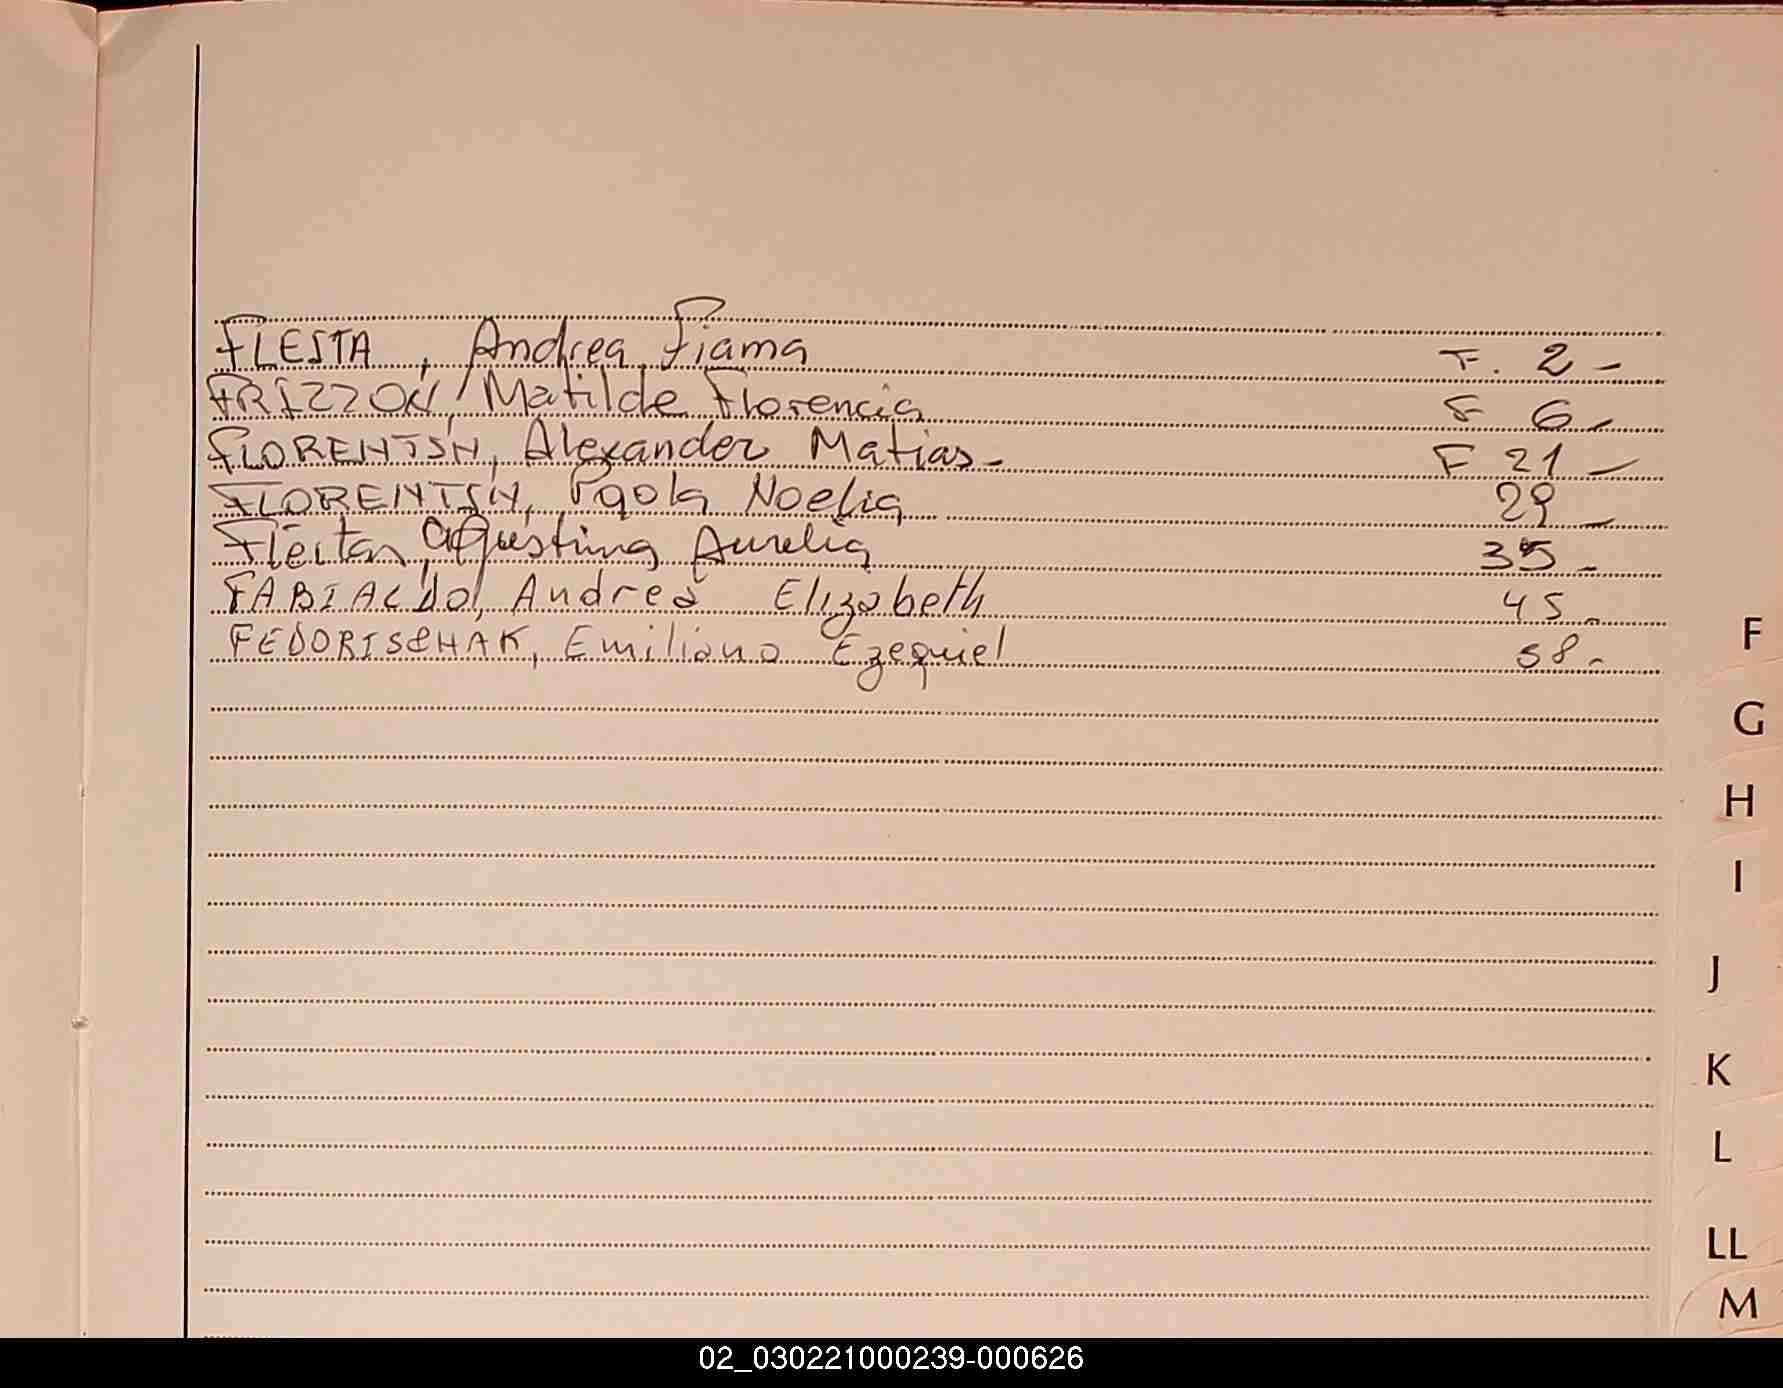 FLESTA, Andrea Fiama F. 2 -
FRIZZON, Matilde Florencia F 6 -
FLORENTIN, Alexander Matias - F 21 -
FLORENTIN, Paola Noelia 29 -
Fleitas, Agustina Aurelia 35 -
FABIALDO, Andrea Elizabeth 45 -
FEDORISCHAK, Emiliano Ezequiel 58 -
F
G
H
I
J
K
L
LL
M
02_030221000239-000626